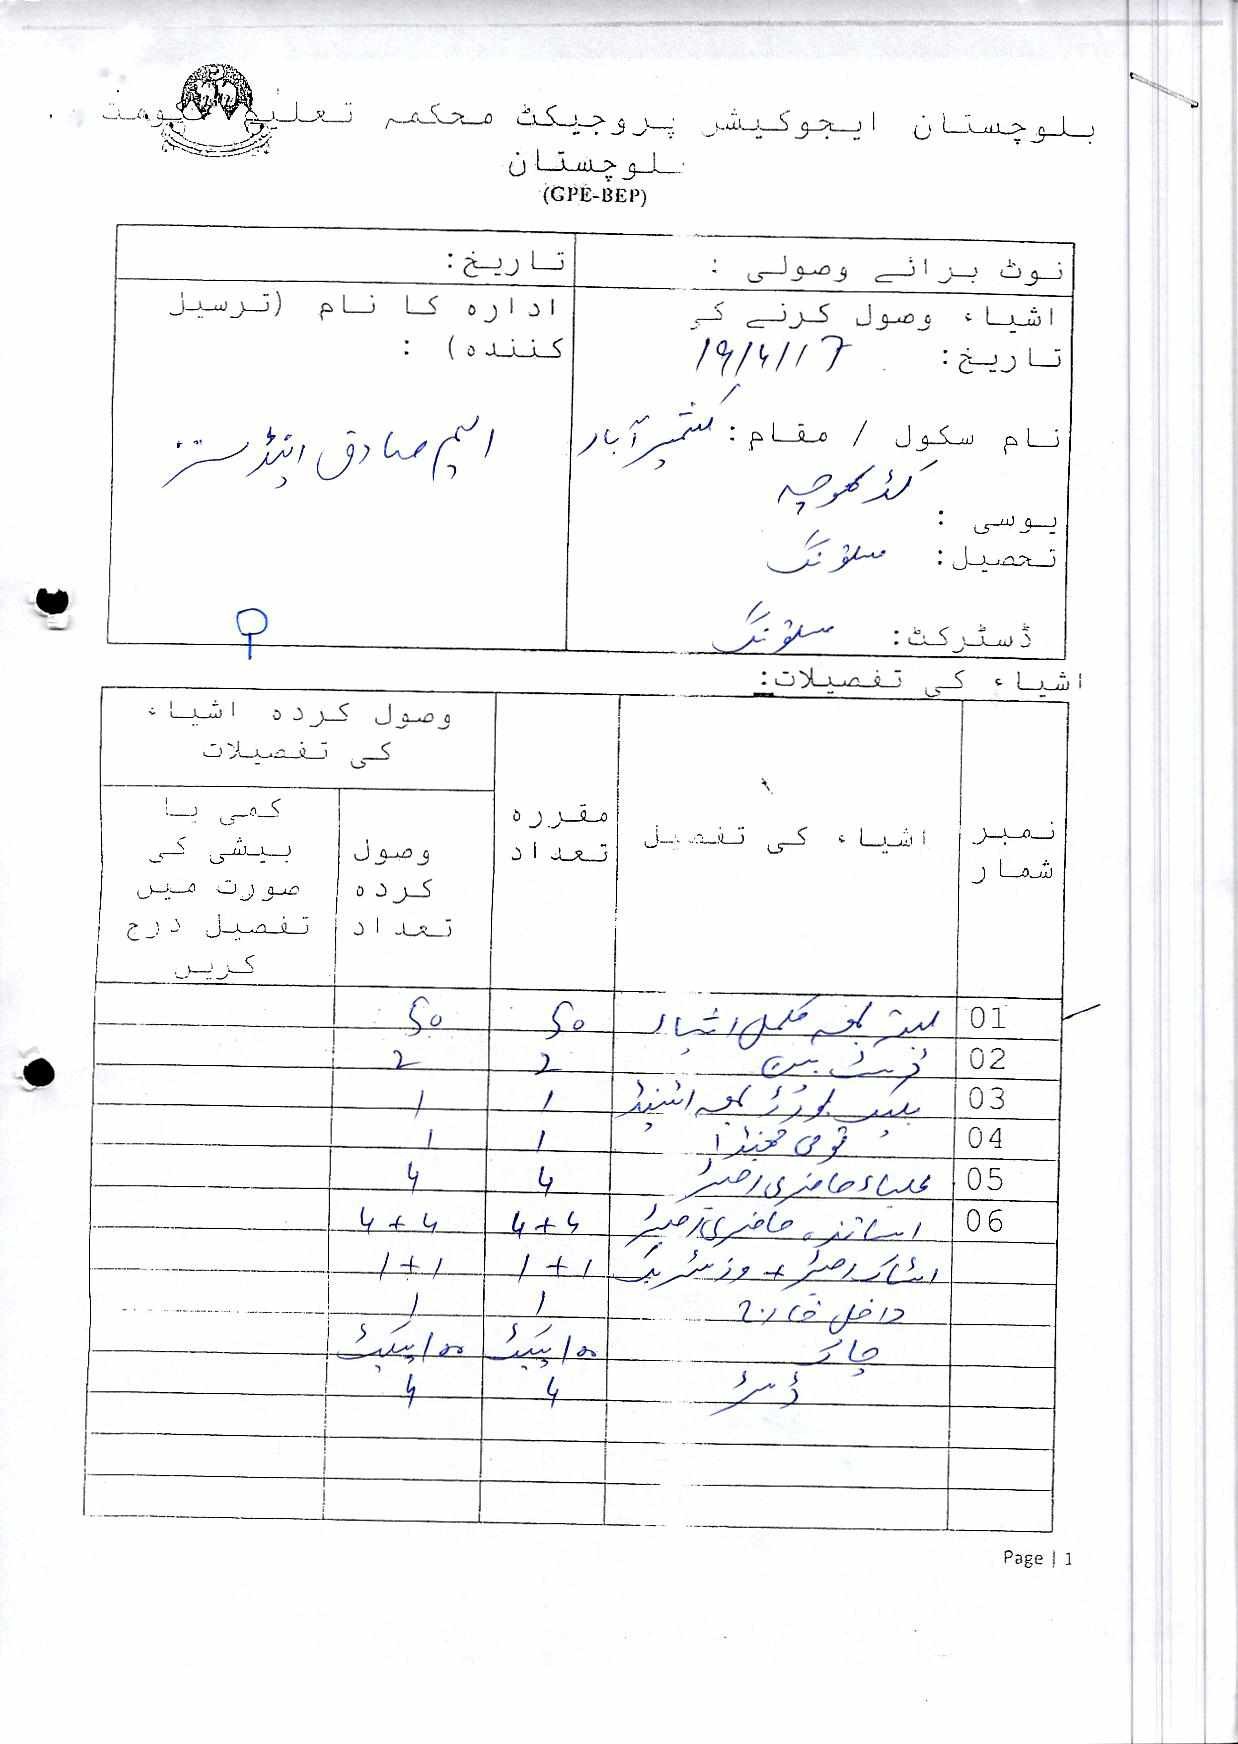 بلوچستان ایجوکیشر پروجیکٹ محکمہ تعلیم حکومت
بلوچستان
(GPE-BEP)
نوٹ برائے وصولی :
تاریخ:
اشیاء وصول کرنے کی
تاریخ: 19/4/17
نام سکول / مقام: کشمیر آباد
کڈ کھوچہ
یوسی :
تحصیل: مستونگ
ڈسٹرکٹ: مستونگ
ادارہ کا نام (ترسیل
کنندہ) :
ایم صادق اینڈ سنز
اشیاء کی تفصیلات:
نمبر شمار
اشیاء کی تفصیل
مقررہ تعداد
وصول کردہ اشیاء کی تفصیلات
وصول کردہ تعداد
کمی یا بیشی کی صورت میں تفصیل درج کریں
01 بمعہ مکمل اشیاء 50 50
02 2 2
03 بلیک بورڈ بمعہ اسٹینڈ 1 1
04 قومی جھنڈا 1 1
05 طلباء حاضری رجسٹر 4 4
06 اساتذہ حاضری رجسٹر 4+4 4+4
اسٹاک رجسٹر + وزیٹر بک 1+1 1+1
داخل خارج 1 1
چاک 100 پیکٹ 100 پیکٹ
ڈسٹر 4 4
Page | 1